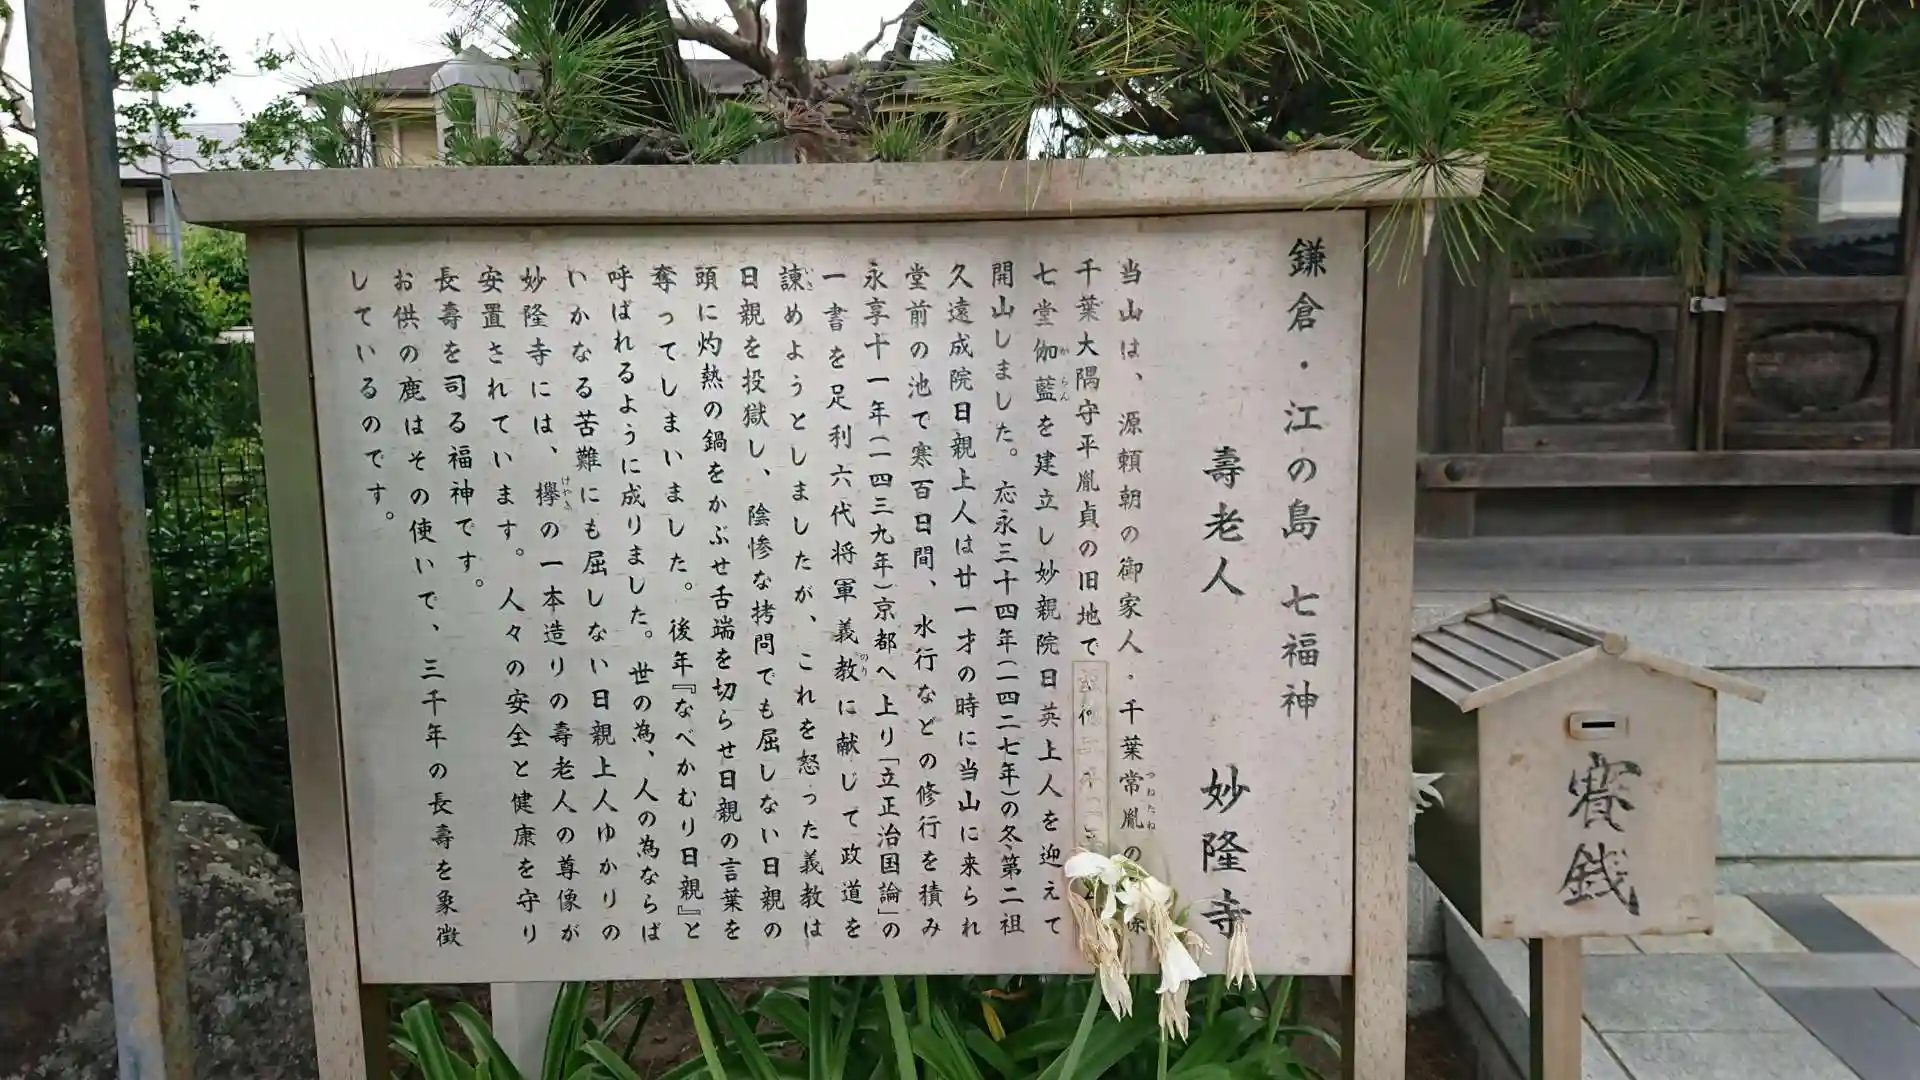 鎌倉・江の島 七福神
壽老人 妙隆寺
当山は、源頼朝の御家人・千葉常胤の
つねたね
千葉大隅守平胤貞の旧地で
七堂伽藍を建立し妙親院日英上人を迎えて
がらん
開山しました。応永三十四年(一四二七年)の冬、第二祖
久遠成院日親上人は廿一才の時に当山に来られ
堂前の池で寒百日間、水行などの修行を積み
永享十一年(一四三九年)京都へ上り「立正治国論」の
一書を足利六代将軍義教に献じて政道を
のり
諫めようとしましたが、これを怒った義教は
日親を投獄し、陰惨な拷問でも屈しない日親の
頭に灼熱の鍋をかぶせ舌端を切らせ日親の言葉を
奪ってしまいました。後年『なべかむり日親』と
呼ばれるように成りました。世の為、人の為ならば
いかなる苦難にも屈しない日親上人ゆかりの
妙隆寺には、欅の一本造りの壽老人の尊像が
けやき
安置されています。人々の安全と健康を守り
長壽を司る福神です。
お供の鹿はその使いで、三千年の長壽を象徴
しているのです。
賽銭